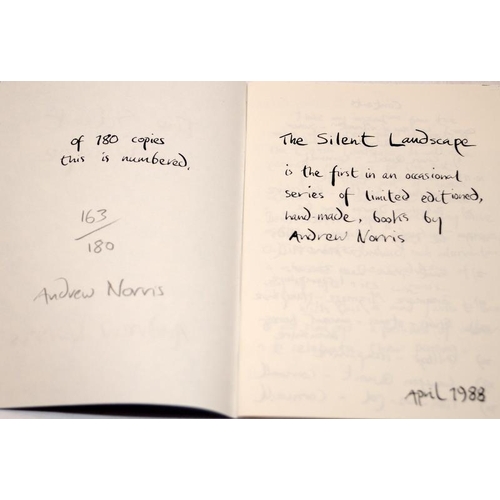 of 180 copies
this is numbered.
163
180
Andrew Norris
The Silent Landscape
is the first in an occasional
series of limited editioned,
hand-made, books by
Andrew Norris
April 1988